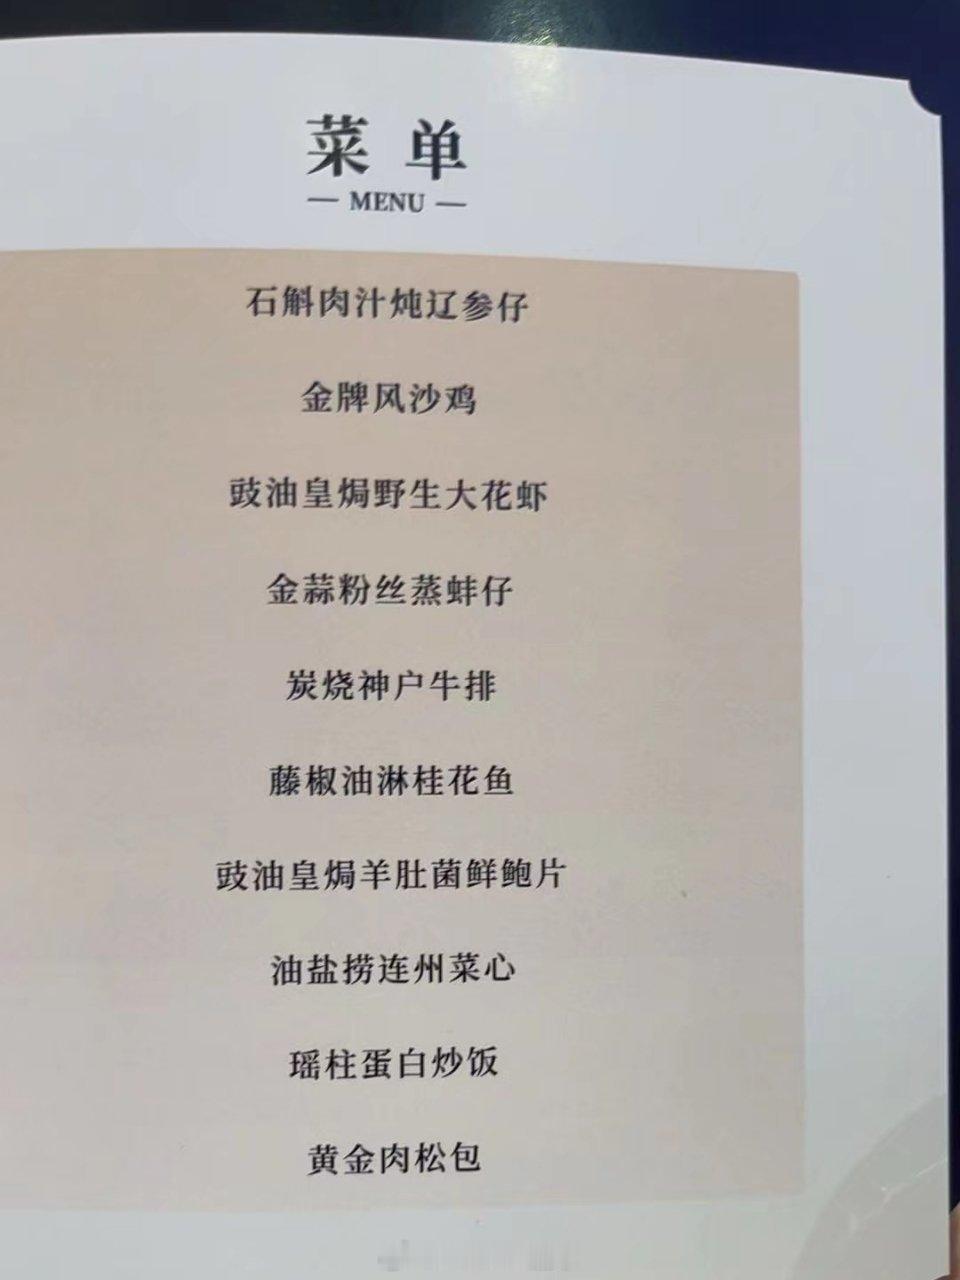 菜单
— MENU —
石斛肉汁炖辽参仔
金牌风沙鸡
豉油皇焗野生大花虾
金蒜粉丝蒸蚌仔
炭烧神户牛排
藤椒油淋桂花鱼
豉油皇焗羊肚菌鲜鲍片
油盐捞连州菜心
瑶柱蛋白炒饭
黄金肉松包